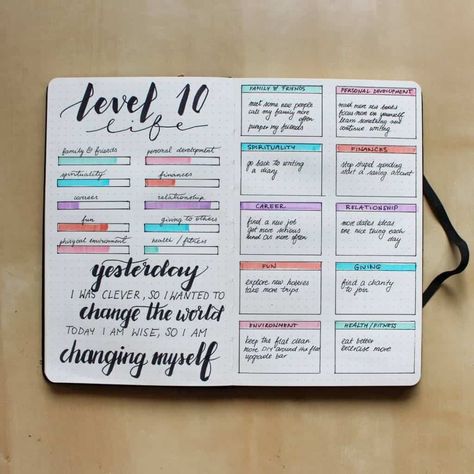 level 10
life
family & friends
personal development
spirituality
finances
career
relationship
fun
giving to others
physical environment
health / fitness
yesterday
I WAS CLEVER, SO I WANTED TO
change the world
TODAY I AM WISE, SO I AM
changing myself
FAMILY & FRIENDS
meet some new people
call my family more
often
pamper my friends
PERSONAL DEVELOPMENT
read more new books
focus more on yourself
learn something
continue writing
SPIRITUALITY
go back to writing
a diary
FINANCES
stop stupid spending
start a saving account
CAREER
find a new job
get more serious
more often
RELATIONSHIP
more dates ideas
one nice thing each
day
FUN
explore new hobbies
take more trips
GIVING
find a charity
to join
ENVIRONMENT
keep the flat clean
more DIY around the flat
upgrade bar
HEALTH/FITNESS
eat better
exercise more